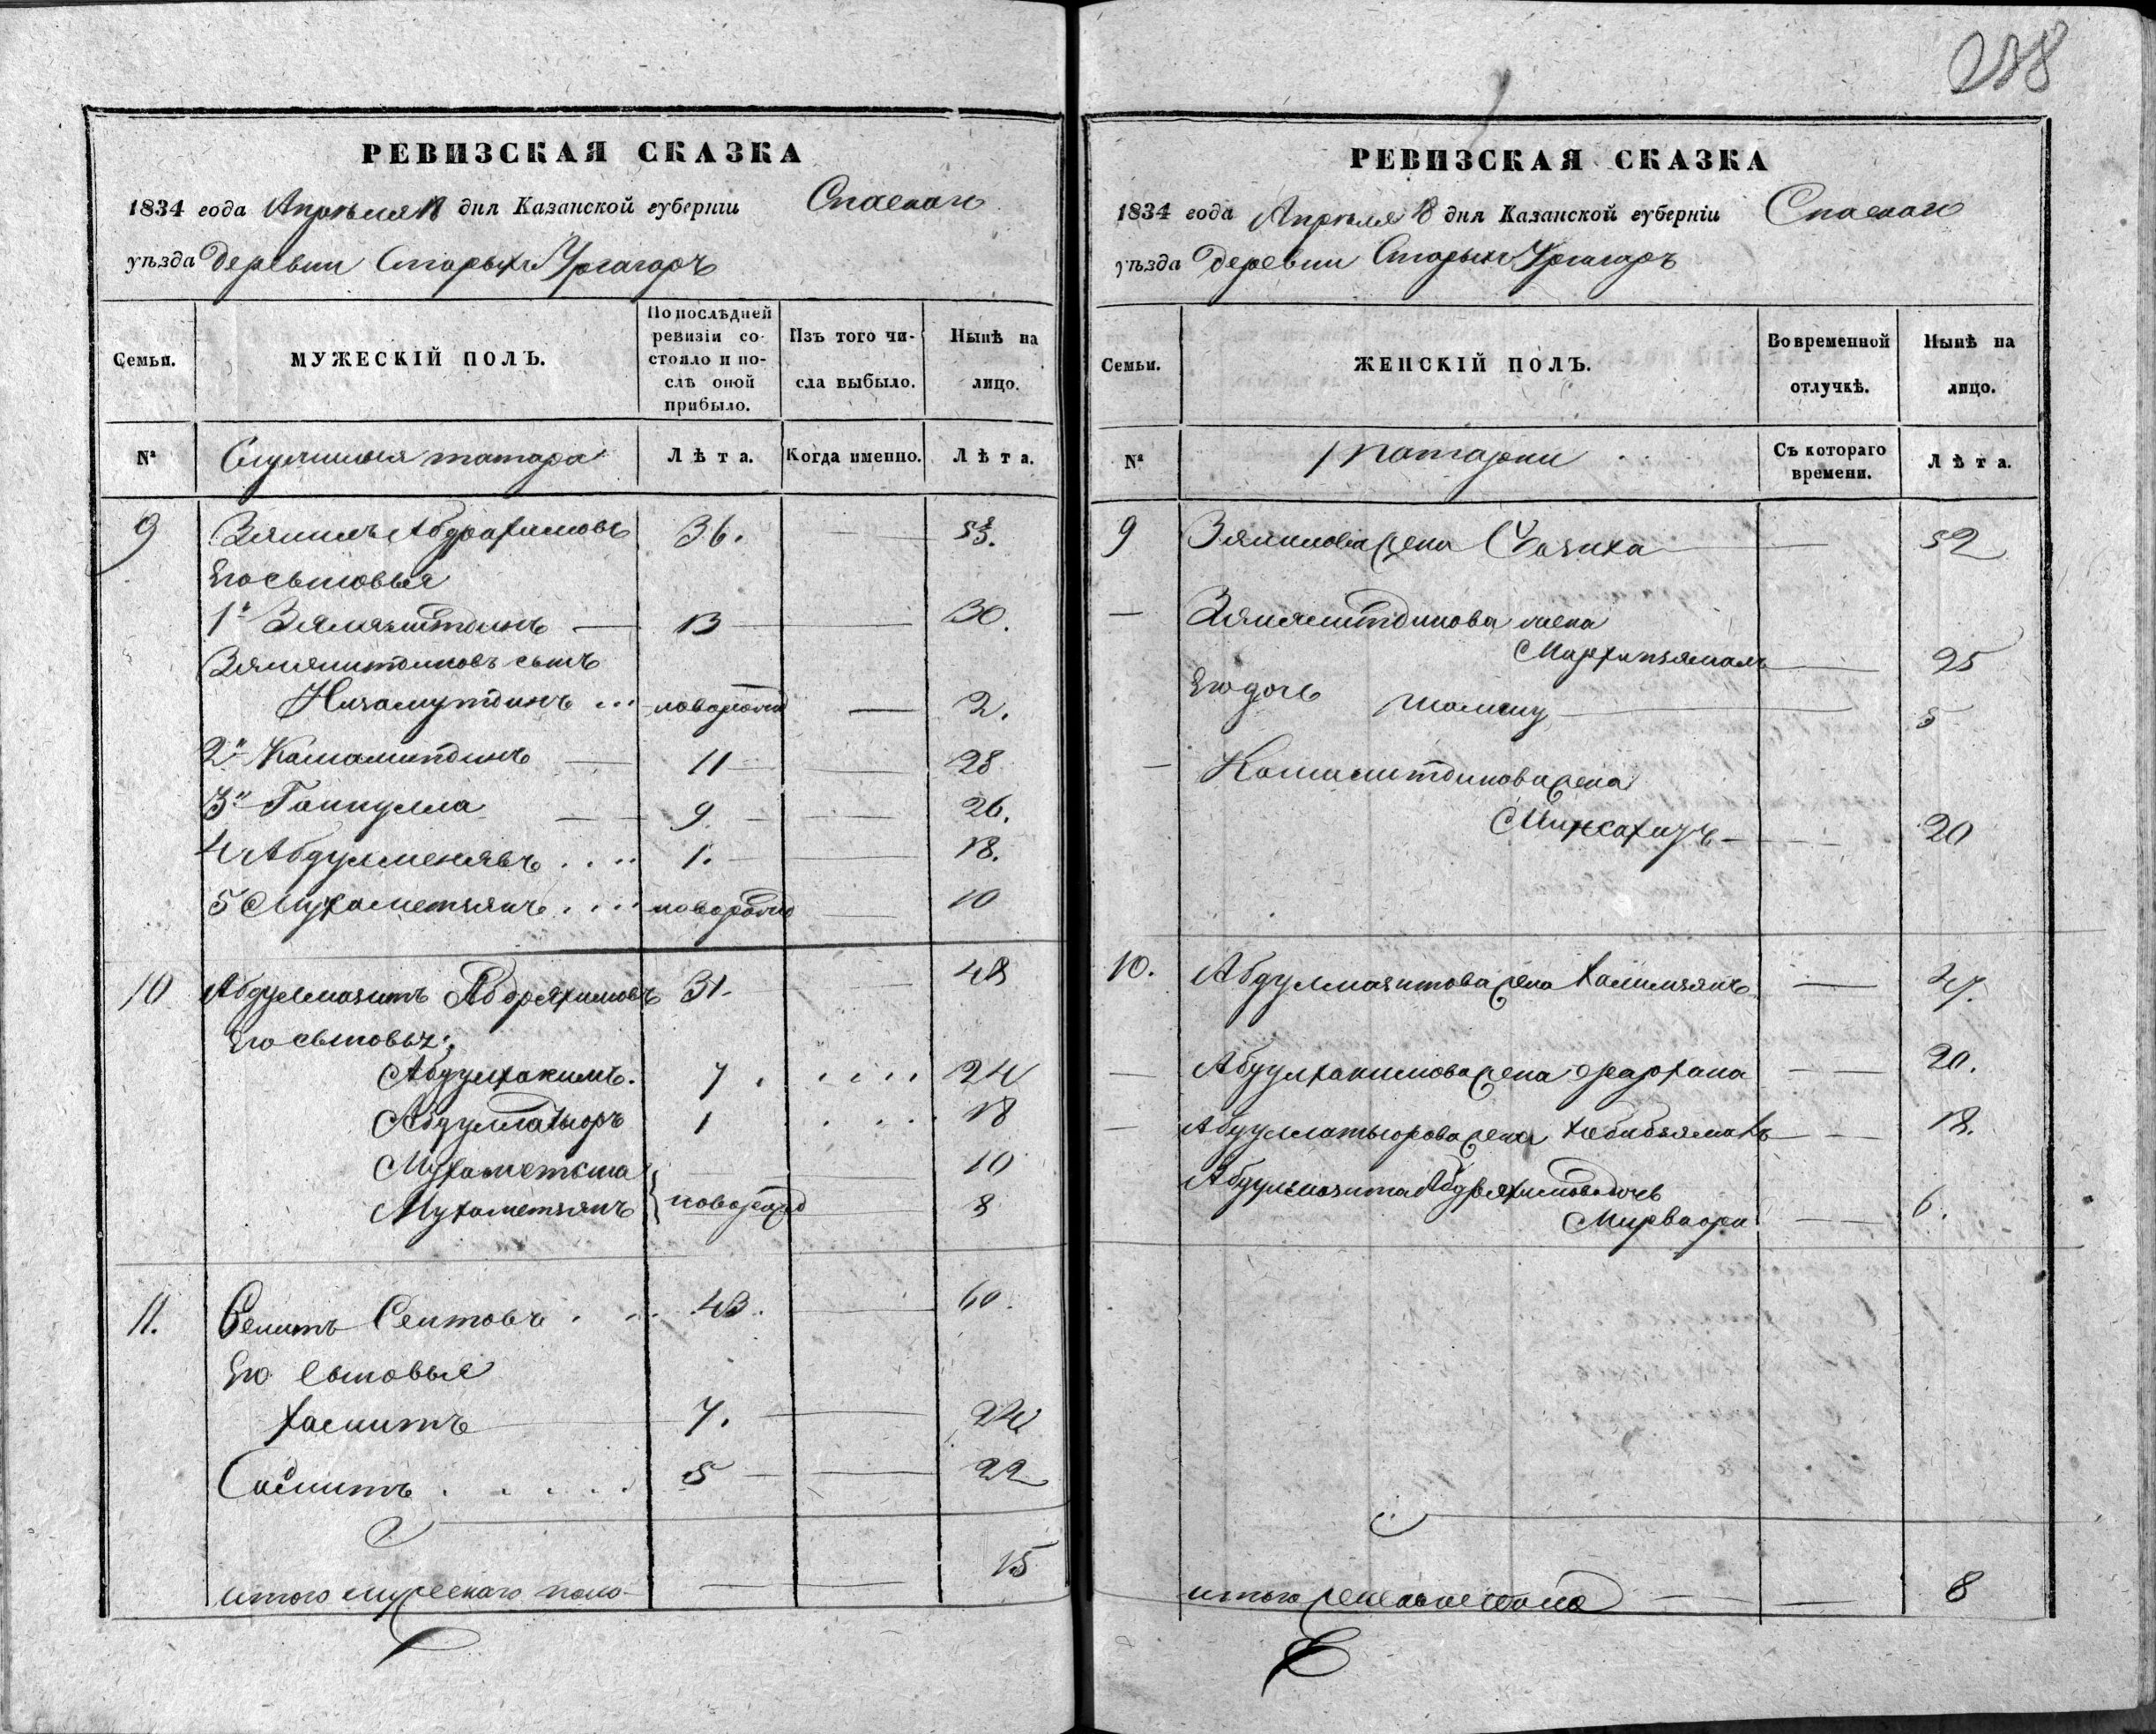 288
РЕВИЗСКАЯ СКАЗКА
1834 года Апрѣля 18 дня Казанской губерніи Спаскаго
уѣзда деревни Старыхъ Ургагаръ
Семьи.
МУЖЕСКІЙ ПОЛЪ.
По послѣдней
ревизіи со-
стояло и по-
слѣ оной
прибыло.
Изъ того чи-
сла выбыло.
Нынѣ на
лицо.
№
Служилыя татара
Лѣта.
Когда именно.
Лѣта.
9 Зямилъ Абдрахимовъ 36. 53.
Его сыновья
1й Зямялитдинъ 13 30.
Зямялитдиновъ сынъ
Низамутдинъ новорожд 2.
2й Камалитдинъ 11 28
3й Ганнулла 9. 26.
4 Абдулменявъ 1. 18.
5 Мухаметзянъ новорожд 10
10 Абдулмазитъ Абдряхимовъ 31. 48
Его сыновья:
Абдулхакимъ. 7. 24
Абдуллатыоръ 1 18
Мухаметьша 10
Мухаметзянъ новорожд 8
11. Сеитъ Сеитовъ 43. 60.
Его сыновья
Хамитъ 7. 24
Сабитъ 5 22
15
итого мужескаго пола
РЕВИЗСКАЯ СКАЗКА
1834 года Апрѣля 18 дня Казанской губерніи Спаскаго
уѣзда деревни Старыхъ Ургагаръ
Семьи.
ЖЕНСКІЙ ПОЛЪ.
Во временной
отлучкѣ.
Нынѣ на
лицо.
№
татарки
Съ котораго
времени.
Лѣта.
9 Зямилова жена 52
Зямялитдинова жена
25
Его дочь 5
Камалитдинова жена
20
10. Абдулмазитова жена Халимзянъ 47.
Абдулхакимова жена 20.
Абдуллатыорова жена Хабибзямалъ 18.
Абдулмазита Абдряхимова дочь
Мирваори 6.
итого женскаго пола 8